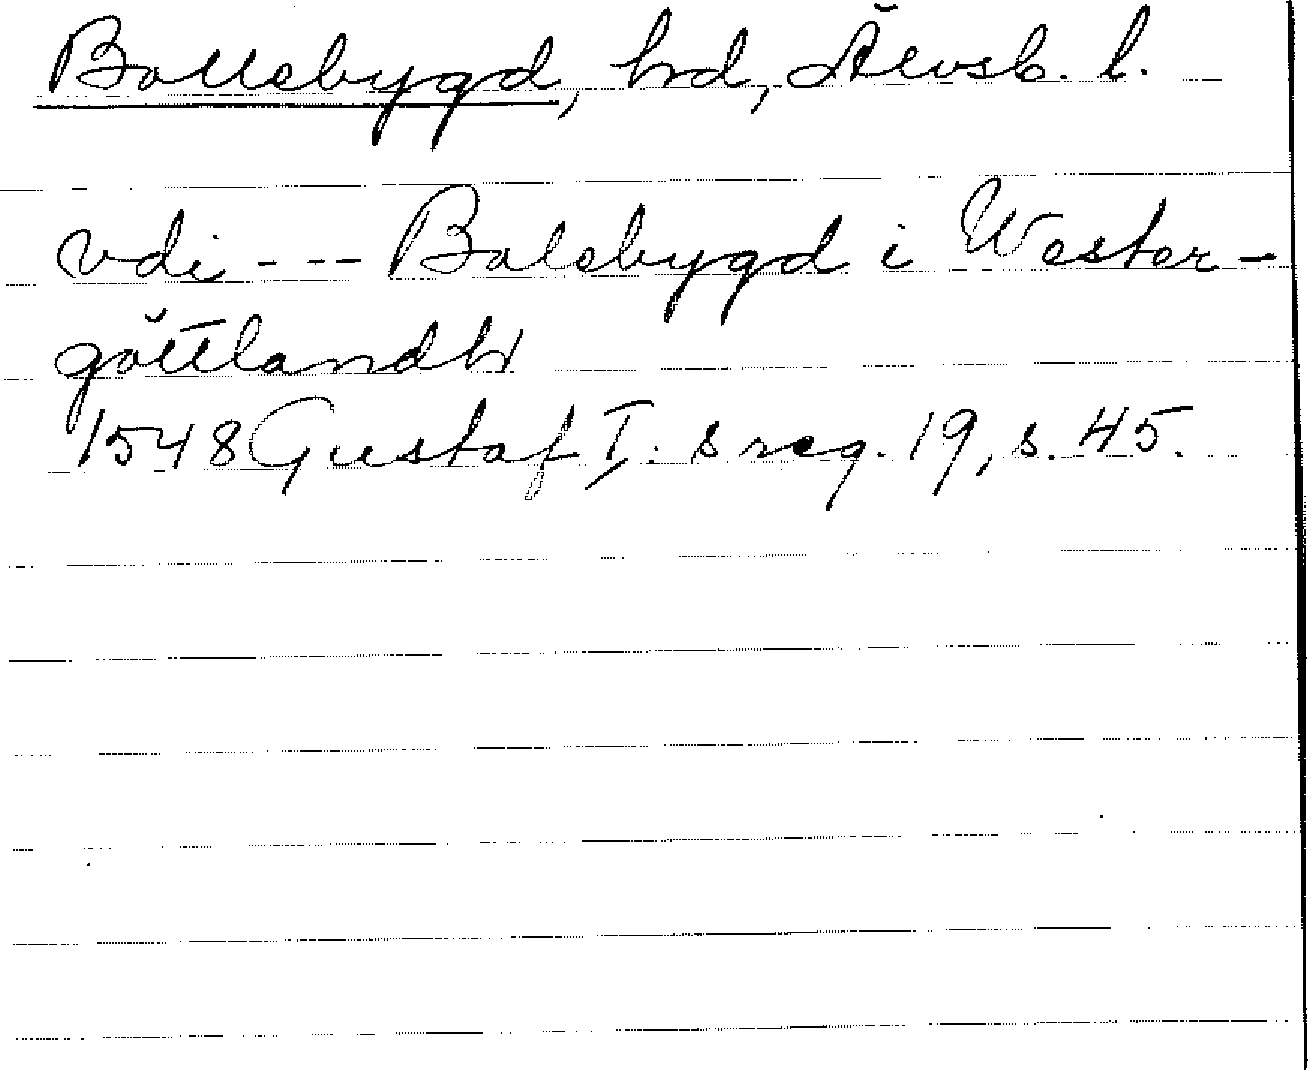 Bollebygd, hd, Älvsb. l.
vdi --- Bolebygd i Wester-
göttlandh
1548 Gustaf I:s reg. 19, s. 45.